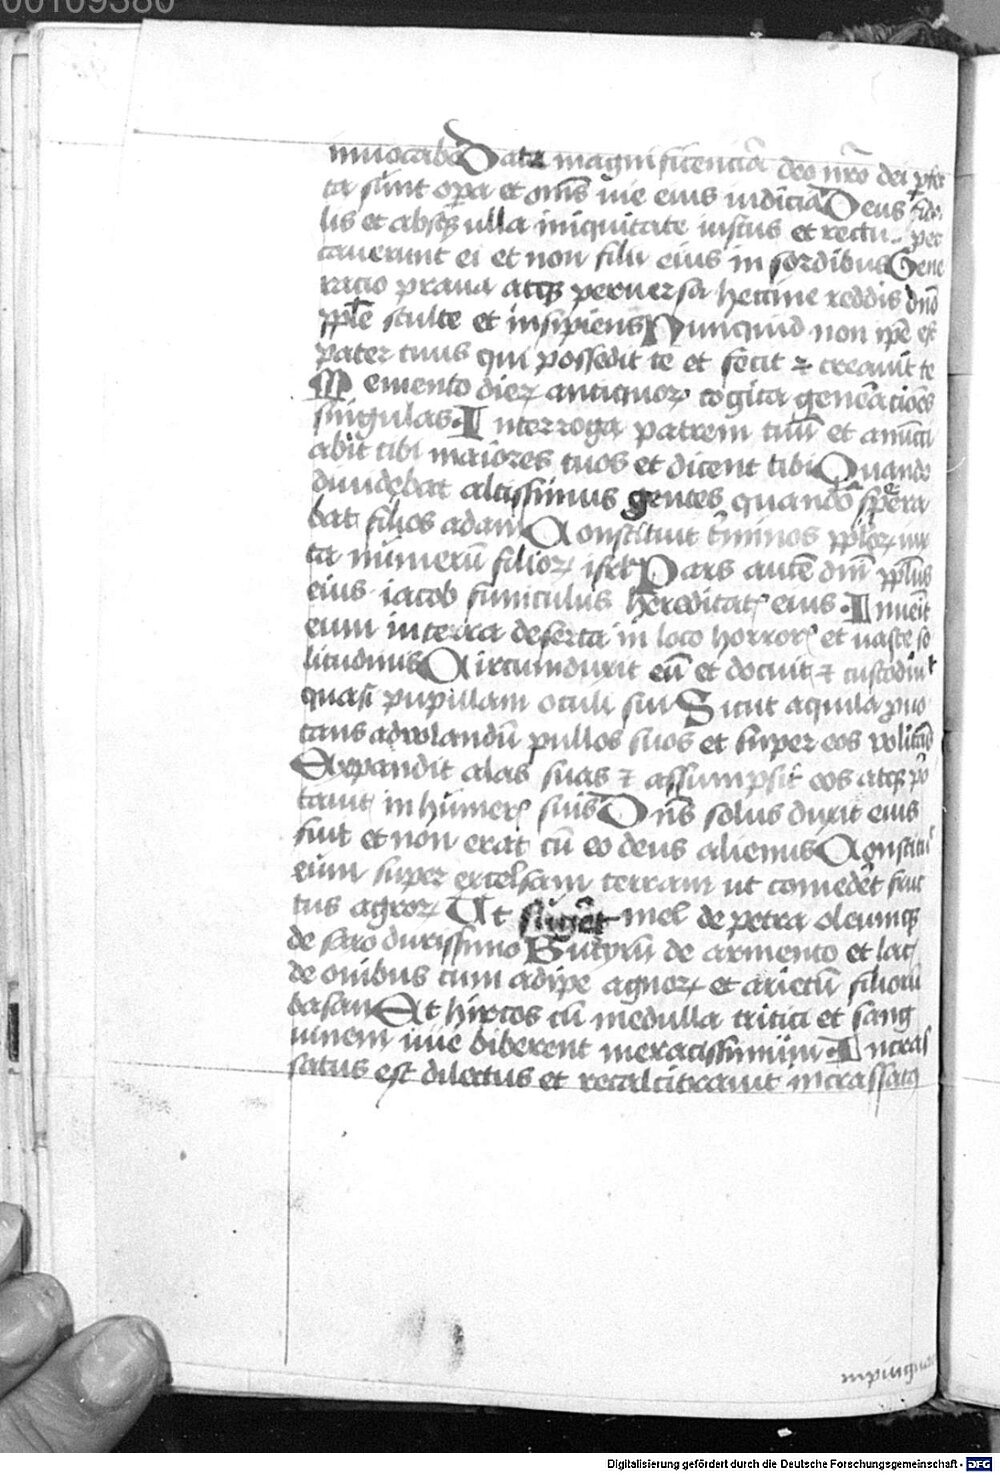 00109380
inuocabo Date magnificenciā deo nr̄o dei ꝑfec
ta sunt opera et om̄s uie eius iudicia Deus fide
lis et absqꝫ ulla iniquitate iustus et rectu. pec
cauerunt ei et non filii eius in sordibus Gene
racio praua atqꝫ peruersa heccine reddis dn̄o
pple stulte et insipiens Nunquid non ip̄e est
pater tuus qui possedit te et fecit ⁊ creauit te
Memento dieꝝ antiquoꝝ cogita gen̄eracio̅es
singulas. Interroga patrem tuū et anūnci
abit tibi maiores tuos et dicent tibi Quando
diuidebat altissimus gentes quando sepera
bat filios adam Constituit t̄minos pploꝝ iux
ta numerū filioꝝ isrl Pars autē dn̄i ppl̄us
eius iacob funiculus hereditatꝭ eius. Inuen̄it
eum in terra deserta in loco horrorꝭ et uaste so
litudinis Circumduxit eū et docuit ⁊ custodiuit
quasi pupillam oculi sui Sicut aquila ꝓuo
cans aduolandū pullos suos et super eos volitās
Expandit alas suas ⁊ assumpsit eos atqꝫ por
tauit in humerꝭ suis Dn̄s solus duxit eius
fuit et non erat cū eo deus alienus Constituit
eum super excelsam terram ut comedēt fruc
tus agroꝝ Ut sugēt mel de petra oleumqꝫ
de saxo durissimo Butyrū de armento et lac
de ouibus cum adipe agnoꝝ et arietū filiorū
basan Et hircos cū medulla tritici et sang
uinem uue biberent meracissimum. Incras
satus est dilectus et recalcitrauit incrassatꝰ
inpingua
Digitalisierung gefördert durch die Deutsche Forschungsgemeinschaft - DFG